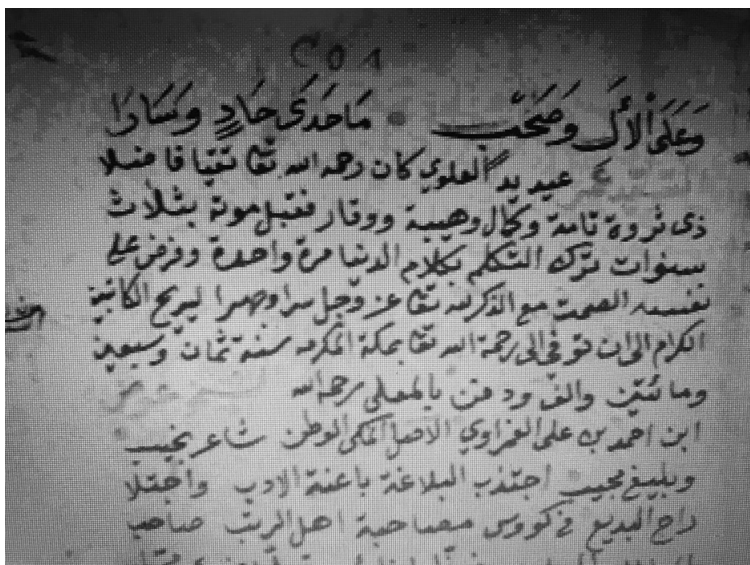 ٢٥١
وعلى الأل وصحب ما حدى حاد وسارا
عيديد العلوي كان رحمه الله تقا تقيا فاضلا
ذى ثروة تامة وكمال وهيبة ووقار فقبل موته بثلاث
سنوات ترك التكلم بكلام الدنيا مرة واحدة وفرض على
نفسه الصمت مع الذكر لله تقا عز وجل سرا وجهرا ليريح الكاتبين
الكرام الى ان توفى الى رحمة الله تقا بمكة المكرمه سنة ثمان وسبعين
ومائتين والف ودفن بالمعلى رحمه الله
ابن احمد بن على العزاوي الاصل المكى الوطن شاعر نجيب
وبليغ مجيب اجتذب البلاغة باعنة الادب واجتلا
راح البديع فى كووس مصاحبة اهل الرتب صاحب